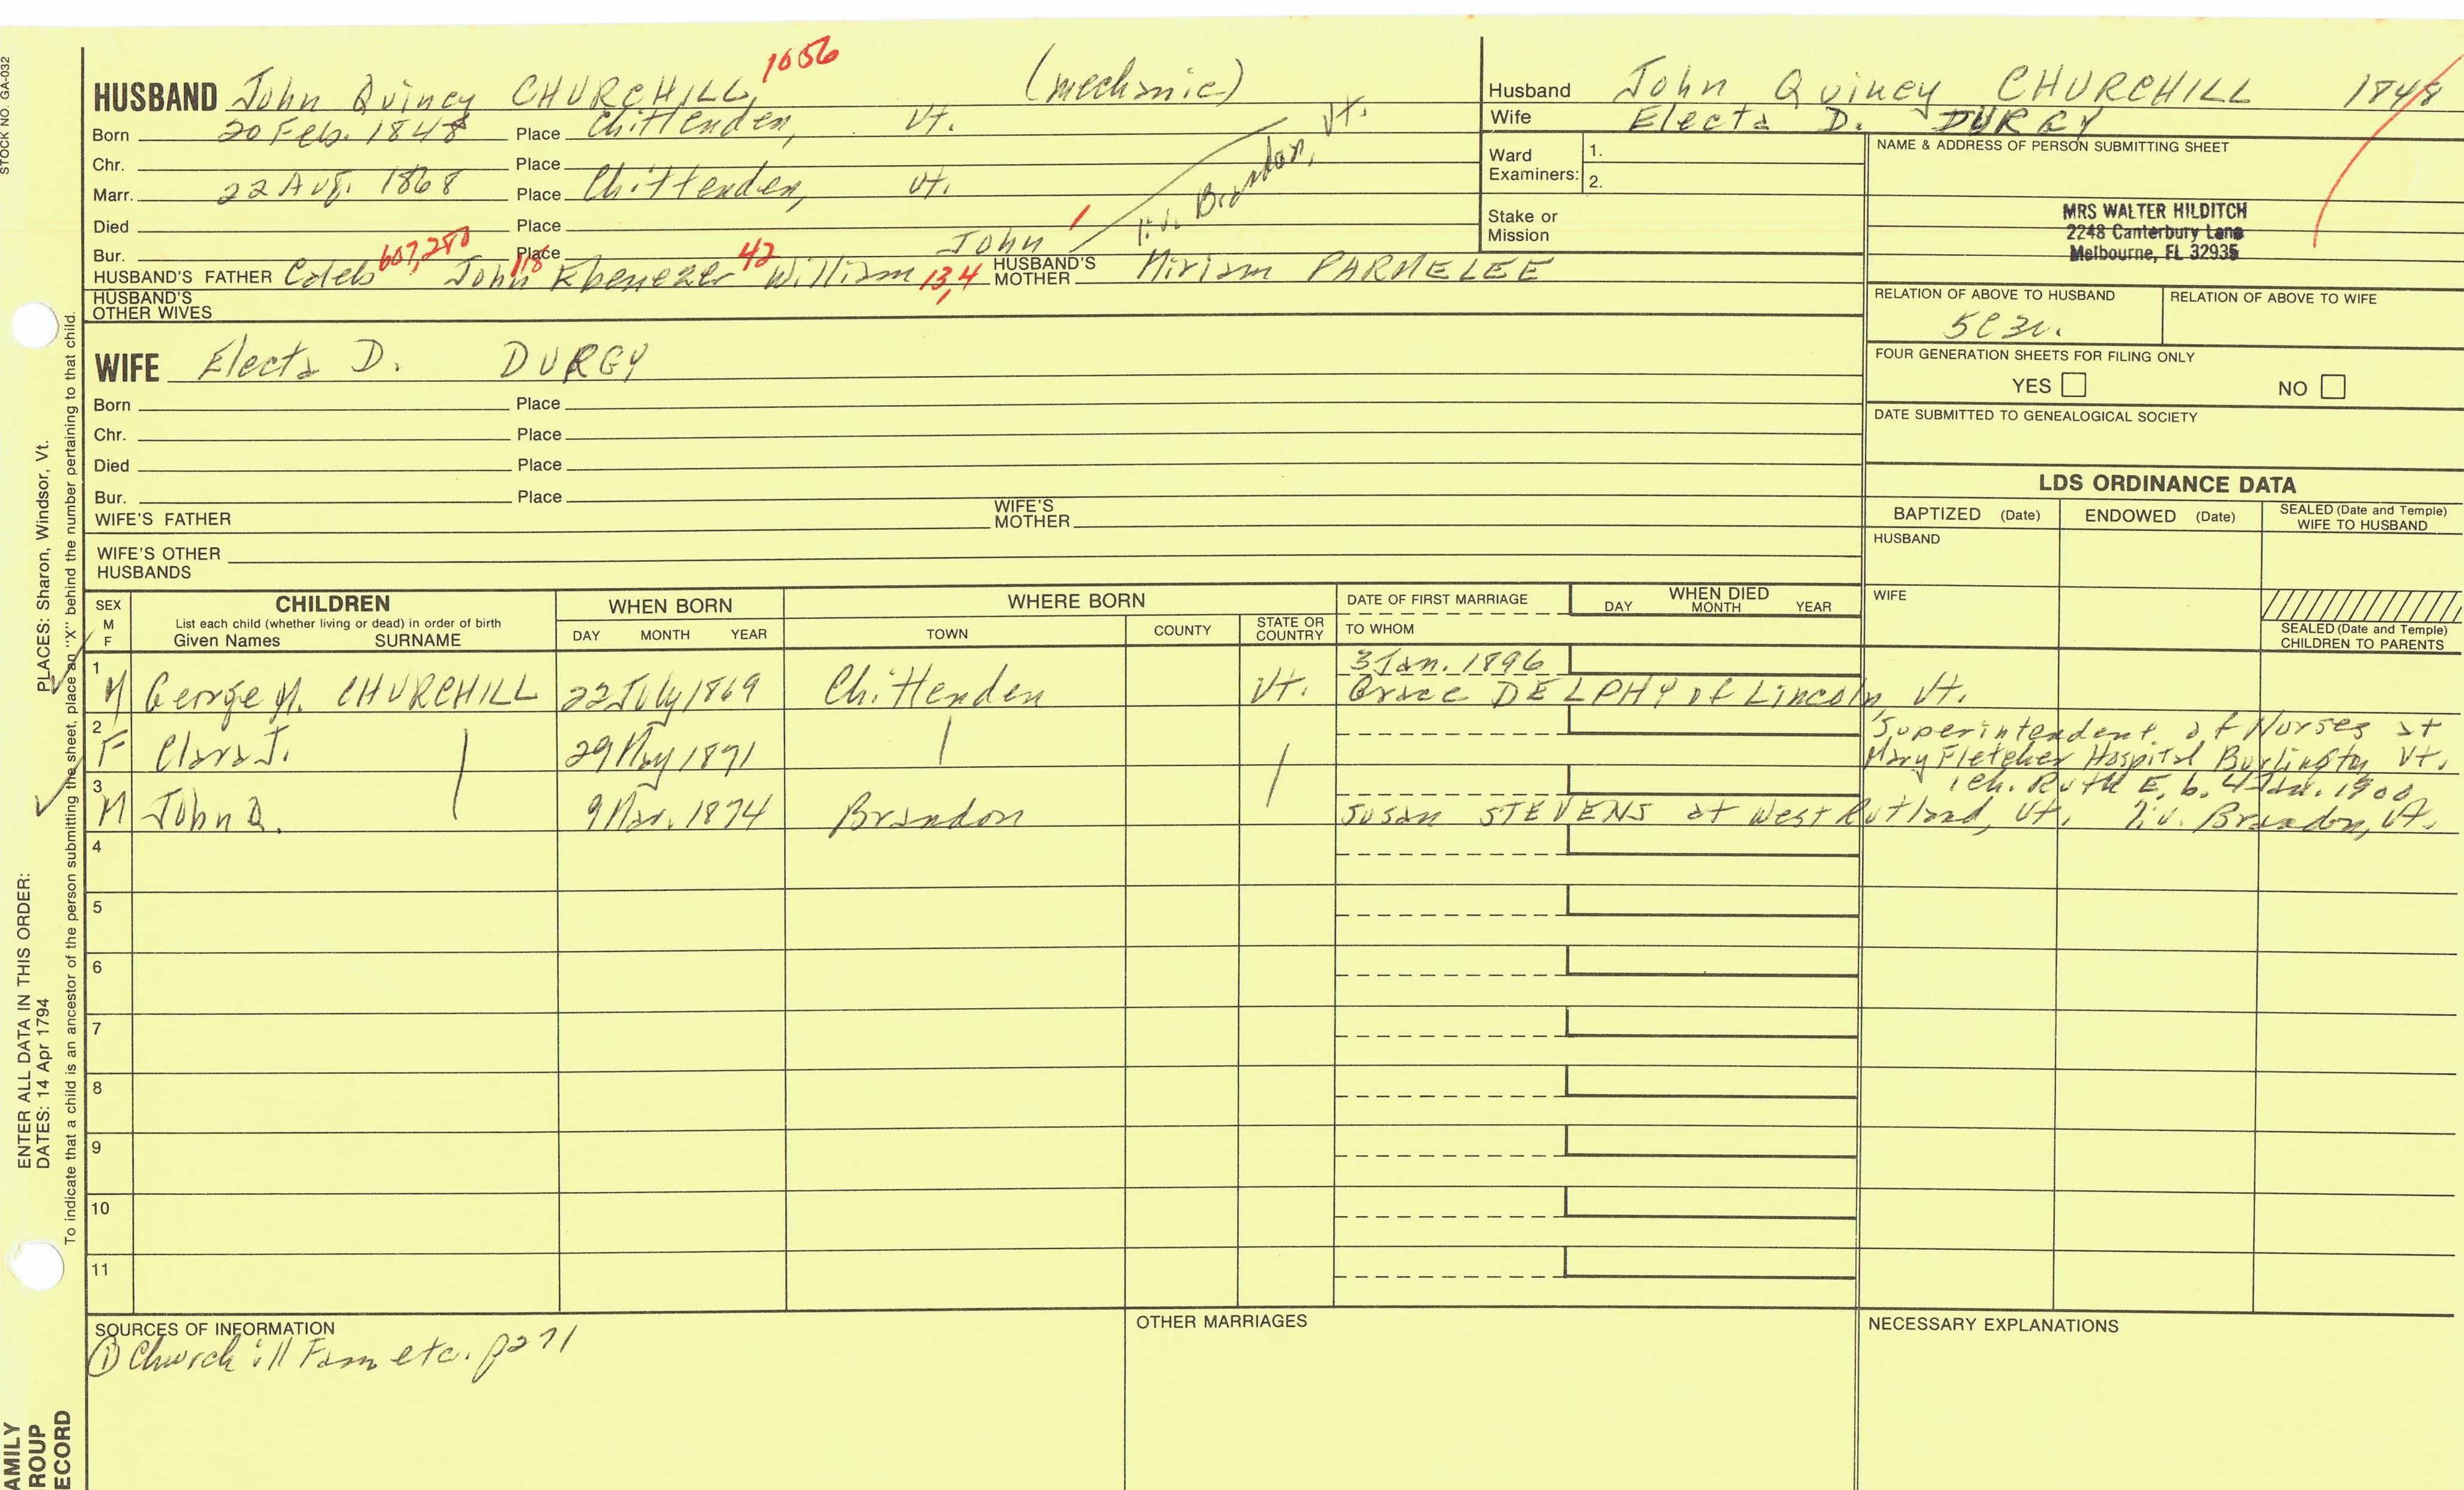 STOCK NO. GA-032
HUSBAND John Quincy CHURCHILL, 1056 (mechanic)
Born 20 Feb. 1848 Place Chittenden, Vt.
Chr. Place
Marr. 22 Aug. 1868 Place Chittenden, Vt.
liv. Brandon, Vt.
Died Place
Bur. Place
HUSBAND'S FATHER Caleb 607,280 John 118 Ebenezer 42 William 13,4 John 1 HUSBAND'S MOTHER Miriam PARMELEE
HUSBAND'S OTHER WIVES
Husband John Quincy CHURCHILL 1848
Wife Electa D. DURGY
Ward Examiners: 1.
2.
Stake or Mission
NAME & ADDRESS OF PERSON SUBMITTING SHEET
MRS WALTER HILDITCH
2248 Canterbury Lane
Melbourne, FL 32935
RELATION OF ABOVE TO HUSBAND RELATION OF ABOVE TO WIFE
5C3r.
FOUR GENERATION SHEETS FOR FILING ONLY
YES NO
DATE SUBMITTED TO GENEALOGICAL SOCIETY
WIFE Electa D. DURGY
Born Place
Chr. Place
Died Place
Bur. Place
WIFE'S FATHER WIFE'S MOTHER
WIFE'S OTHER HUSBANDS
LDS ORDINANCE DATA
BAPTIZED (Date) ENDOWED (Date) SEALED (Date and Temple) WIFE TO HUSBAND
HUSBAND
WIFE
SEALED (Date and Temple) CHILDREN TO PARENTS
SEX M F
CHILDREN
List each child (whether living or dead) in order of birth
Given Names SURNAME
WHEN BORN
DAY MONTH YEAR
WHERE BORN
TOWN COUNTY STATE OR COUNTRY
DATE OF FIRST MARRIAGE
TO WHOM
WHEN DIED
DAY MONTH YEAR
1 M George M. CHURCHILL 22 July 1869 Chittenden Vt. 3 Jan. 1896
Grace DELPHY of Lincoln, Vt.
2 F Clara J. 29 May 1871
Superintendent of Nurses at
Mary Fletcher Hospital Burlington Vt.
3 M John Q. 9 Mar. 1874 Brandon
1 ch. Ruth E. b. 4 Jan. 1900
Susan STEVENS at West Rutland, Vt. liv. Brandon, Vt.
4
5
6
7
8
9
10
11
SOURCES OF INFORMATION
① Churchill Fam etc. p271
OTHER MARRIAGES
NECESSARY EXPLANATIONS
ENTER ALL DATA IN THIS ORDER:
DATES: 14 Apr 1794 PLACES: Sharon, Windsor, Vt.
To indicate that a child is an ancestor of the person submitting the sheet, place an "X" behind the number pertaining to that child.
AMILY
ROUP
ECORD